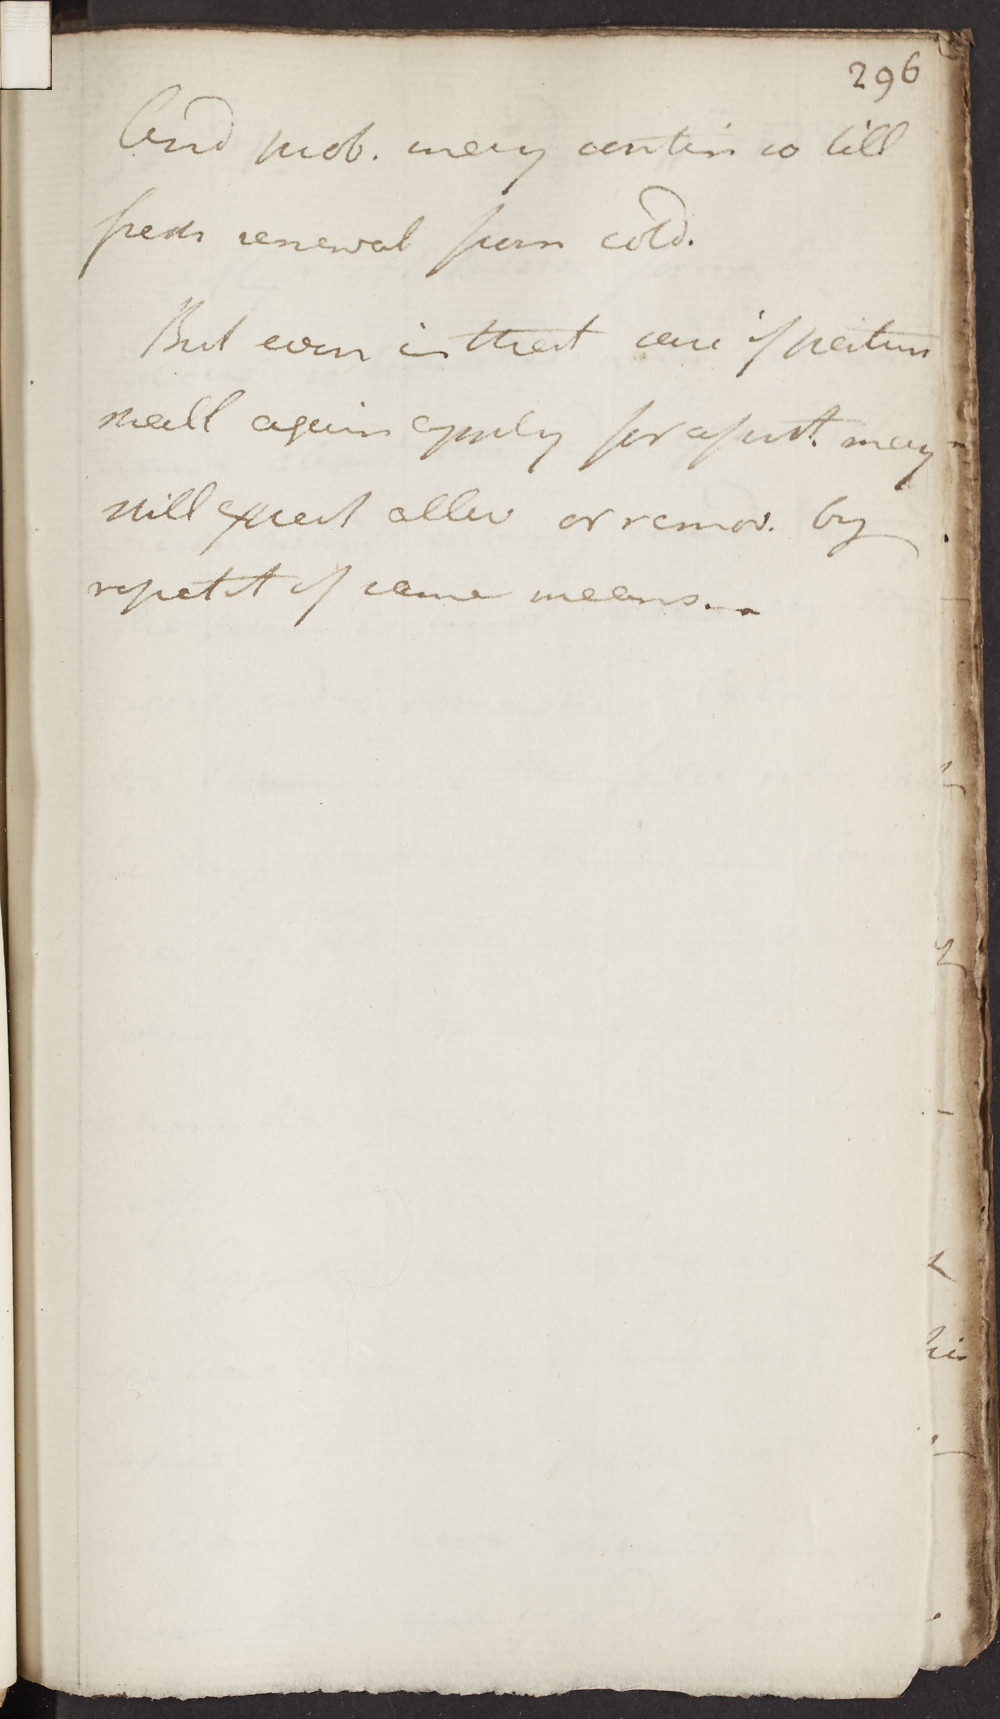 296
And prob. may contin so till
fresh renewal from cold.
But even in that case if patient
shall again apply for assist. may
still expect allev or remov. by
repetit of same means.